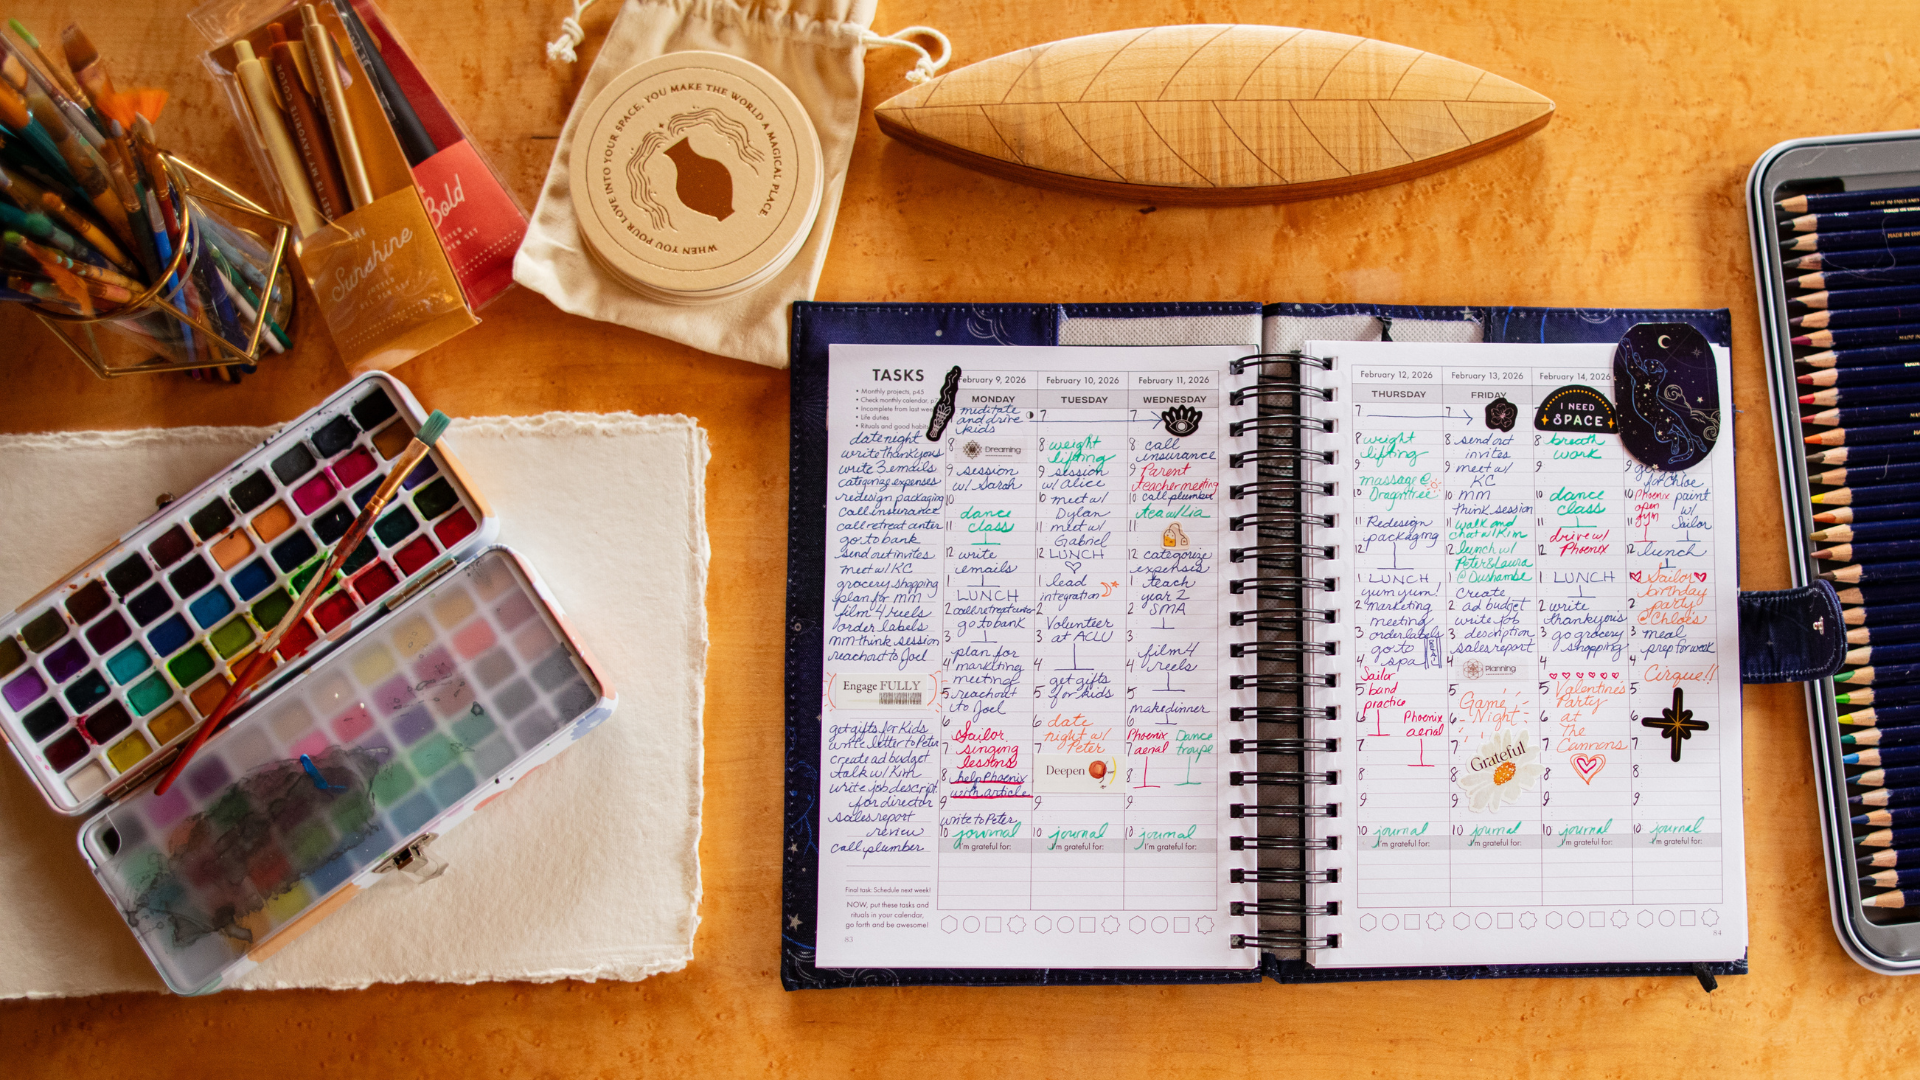 WHEN YOU POUR YOUR LOVE INTO YOUR SPACE, YOU MAKE THE WORLD A MAGICAL PLACE
Sunshine
Bold
TASKS
• Monthly projects, p45
• Check monthly calendar,
• Incomplete from last week
• Life duties
• Rituals and good habits
date night
write thankyous
write 3 emails
categorize expenses
redesign packaging
call insurance
call retreat center
go to bank
send out invites
meet w/ KC
grocery shopping
plan for mm
film 4 reels
order labels
mm think session
reach out to Joel
Engage FULLY
get gifts for kids
write letter to Peter
create ad budget
talk w/ Kim
write job descript.
for director
sales report
review
call plumber
Final task: Schedule next week!
NOW, put these tasks and
rituals in your calendar,
go forth and be awesome!
83
February 9, 2026
MONDAY
meditate
and drive
kids
8 Dreaming
9 session
w/ Sarah
10
dance
11 class
12 write
emails
1
LUNCH
2 call retreat center
go to bank
3
plan for
4 marketing
meeting
5 reach out
to Joel
6
Sailor
7 singing
lessons
8 help Phoenix
with article
9
write to Peter
10 journal
I'm grateful for:
February 10, 2026
TUESDAY
7
8 weight
lifting
9 session
w/ Alice
10 meet w/
Dylan
11 meet w/
Gabriel
12 LUNCH
1 lead
integration
2
Volunteer
3 at ACLU
4
get gifts
5 for kids
6 date
night w/
7 Peter
Deepen
9
10 journal
I'm grateful for:
February 11, 2026
WEDNESDAY
7
8 call
insurance
9 Parent
Teacher meeting
10 call plumber
tea w/ Lia
11
12 categorize
expenses
1 teach
year 2
2 SMA
3
film 4
4 reels
5
make dinner
6
Phoenix Dance
7 aerial troupe
8
9
10 journal
I'm grateful for:
February 12, 2026
THURSDAY
7
8 weight
lifting
9
massage @
10 Dragontree
11 Redesign
packaging
12
1 LUNCH
yum yum!
2 marketing
meeting
3 order labels
go to
4 spa
Sailor
5 band
practice
6 Phoenix
aerial
7
8
9
10 journal
I'm grateful for:
February 13, 2026
FRIDAY
7
8 send out
invites
9 meet w/
KC
10 mm
think session
11 walk and
chat w/ Kim
12 lunch w/
Peter & Laura
1 @ Dushanbe
create
2 ad budget
write job
3 description
sales report
4 Planning
5
Game
6 Night
7
Grateful
8
9
10 journal
I'm grateful for:
February 14, 2026
I NEED
SPACE
8 breath
work
9
10 dance
class
11
drive w/
12 Phoenix
1 LUNCH
2 write
thankyous
3 go grocery
shopping
4
5 Valentine's
Party
6 at
The
7 Cannons
8
9
10 journal
I'm grateful for:
for Chloe
10 Phoenix paint
open w/
11 gym Sailor
12 lunch
1 Sailor
birthday
2 party
@ Chloe's
3 meal
prep for week
4
Cirque!!
5
6
7
8
9
10 journal
I'm grateful for:
84